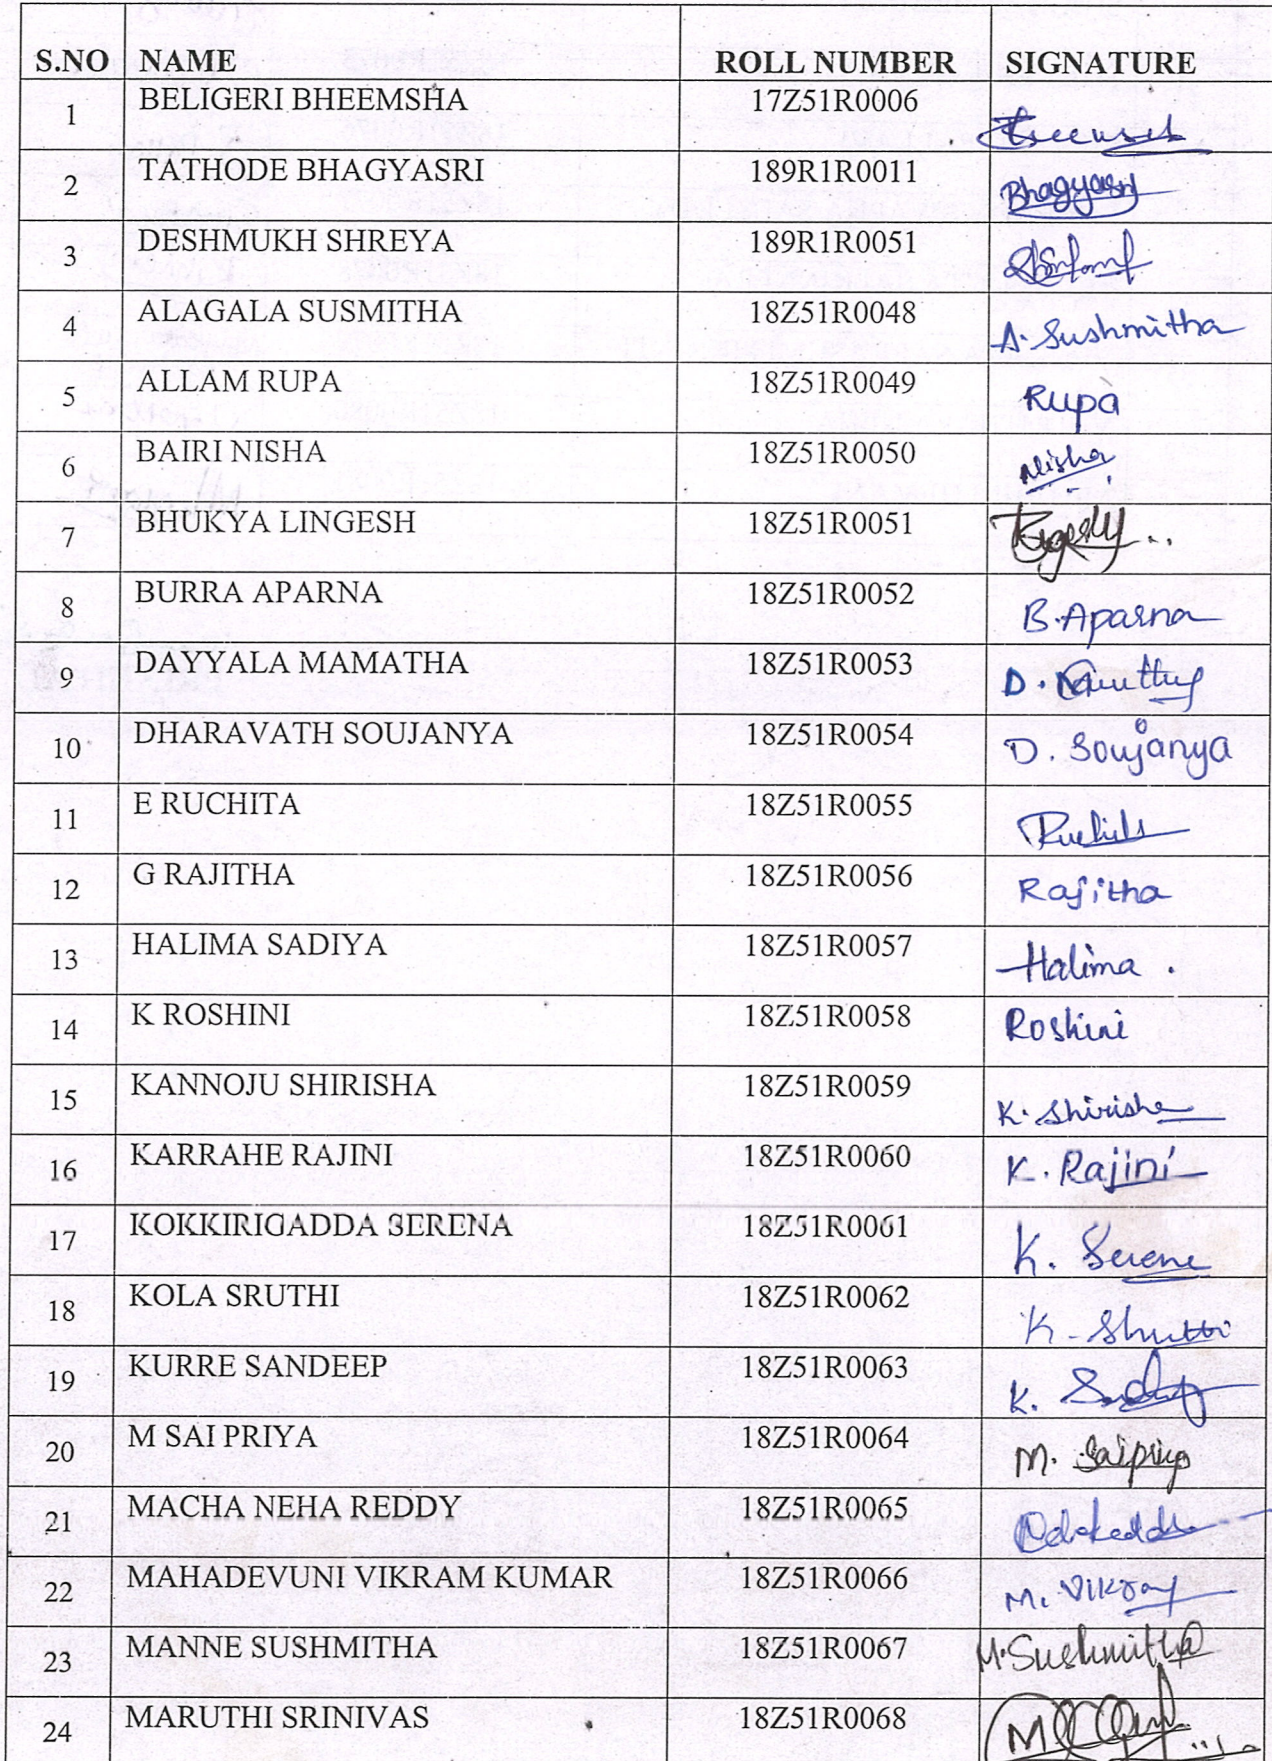 S.NO NAME ROLL NUMBER SIGNATURE
1 BELIGERI BHEEMSHA 17Z51R0006
2 TATHODE BHAGYASRI 189R1R0011 Bhagyasri
3 DESHMUKH SHREYA 189R1R0051
4 ALAGALA SUSMITHA 18Z51R0048 A. Sushmitha
5 ALLAM RUPA 18Z51R0049 Rupa
6 BAIRI NISHA 18Z51R0050 Nisha
7 BHUKYA LINGESH 18Z51R0051
8 BURRA APARNA 18Z51R0052 B.Aparna
9 DAYYALA MAMATHA 18Z51R0053 D.
10 DHARAVATH SOUJANYA 18Z51R0054 D. Soujanya
11 E RUCHITA 18Z51R0055
12 G RAJITHA 18Z51R0056 Rajitha
13 HALIMA SADIYA 18Z51R0057 Halima .
14 K ROSHINI 18Z51R0058 Roshini
15 KANNOJU SHIRISHA 18Z51R0059 K. Shirisha
16 KARRAHE RAJINI 18Z51R0060 K. Rajini
17 KOKKIRIGADDA SERENA 18Z51R0061 K. Serene
18 KOLA SRUTHI 18Z51R0062 K.
19 KURRE SANDEEP 18Z51R0063 K.
20 M SAI PRIYA 18Z51R0064 M. Saipriya
21 MACHA NEHA REDDY 18Z51R0065
22 MAHADEVUNI VIKRAM KUMAR 18Z51R0066 M.
23 MANNE SUSHMITHA 18Z51R0067 M.Sushmitha
24 MARUTHI SRINIVAS 18Z51R0068